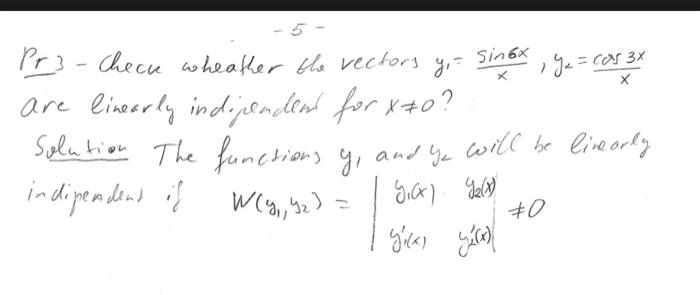 - 5 -
Pr 3 - Checu wheather the vectors y₁ = sin6x/x , y₂ = cos 3x/x
are linearly indipendent for x≠0?
Solution The functions y₁ and y₂ will be linearly
indipendent if W(y₁, y₂) = | y₁(x) y₂(x) | ≠0
| y₁'(x) y₂'(x) |